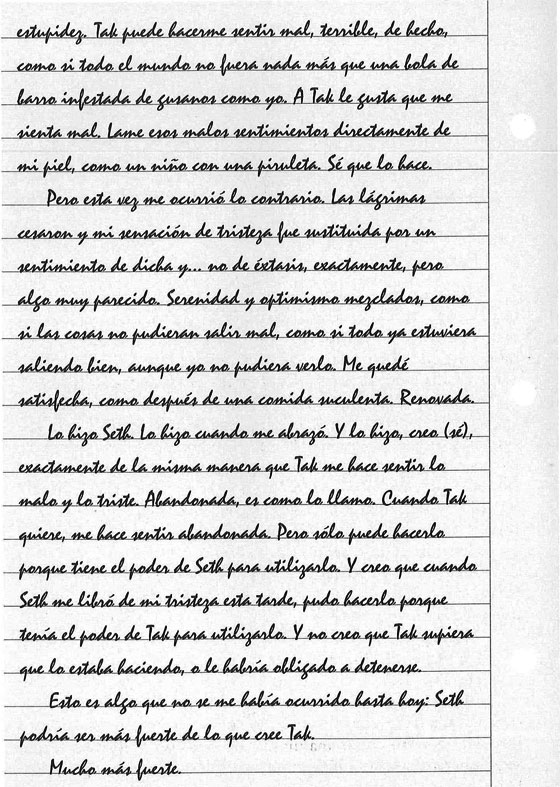 estupidez. Tak puede hacerme sentir mal, terrible, de hecho,
como si todo el mundo no fuera nada más que una bola de
barro infestada de gusanos como yo. A Tak le gusta que me
sienta mal. Lame esos malos sentimientos directamente de
mi piel, como un niño con una piruleta. Sé que lo hace.
Pero esta vez me ocurrió lo contrario. Las lágrimas
cesaron y mi sensación de tristeza fue sustituida por un
sentimiento de dicha y... no de éxtasis, exactamente, pero
algo muy parecido. Serenidad y optimismo mezclados, como
si las cosas no pudieran salir mal, como si todo ya estuviera
saliendo bien, aunque yo no pudiera verlo. Me quedé
satisfecha, como después de una comida suculenta. Renovada.
Lo hizo Seth. Lo hizo cuando me abrazó. Y lo hizo, creo (sé),
exactamente de la misma manera que Tak me hace sentir lo
malo y lo triste. Abandonada, es como lo llamo. Cuando Tak
quiere, me hace sentir abandonada. Pero sólo puede hacerlo
porque tiene el poder de Seth para utilizarlo. Y creo que cuando
Seth me libró de mi tristeza esta tarde, pudo hacerlo porque
tenía el poder de Tak para utilizarlo. Y no creo que Tak supiera
que lo estaba haciendo, o le habría obligado a detenerse.
Esto es algo que no se me había ocurrido hasta hoy: Seth
podría ser más fuerte de lo que cree Tak.
Mucho más fuerte.